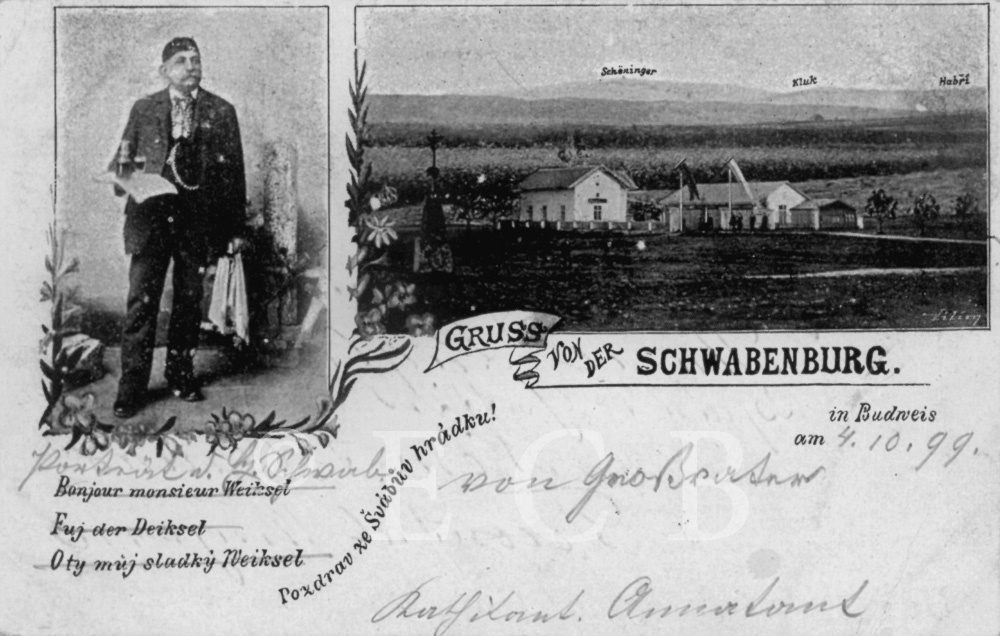 Schöninger
Kluk
Habří
GRUSS VON DER SCHWABENBURG.
in Budweis
am 4.10.99.
Porträt v. Schwab
von Großvater
Bonjour monsieur Weiksel
Fuj der Deiksel
O ty můj sladký Weiksel
Pozdrav ze Švábův hrádku!
Kathitant. Annatant
ECB